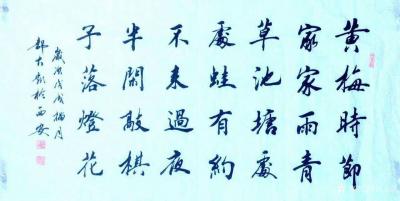 黄梅時節
家家雨青
草池塘處
處蛙有約
不来過夜
半閑敲棋
子落燈花
歲次戊戌梅月
於西安